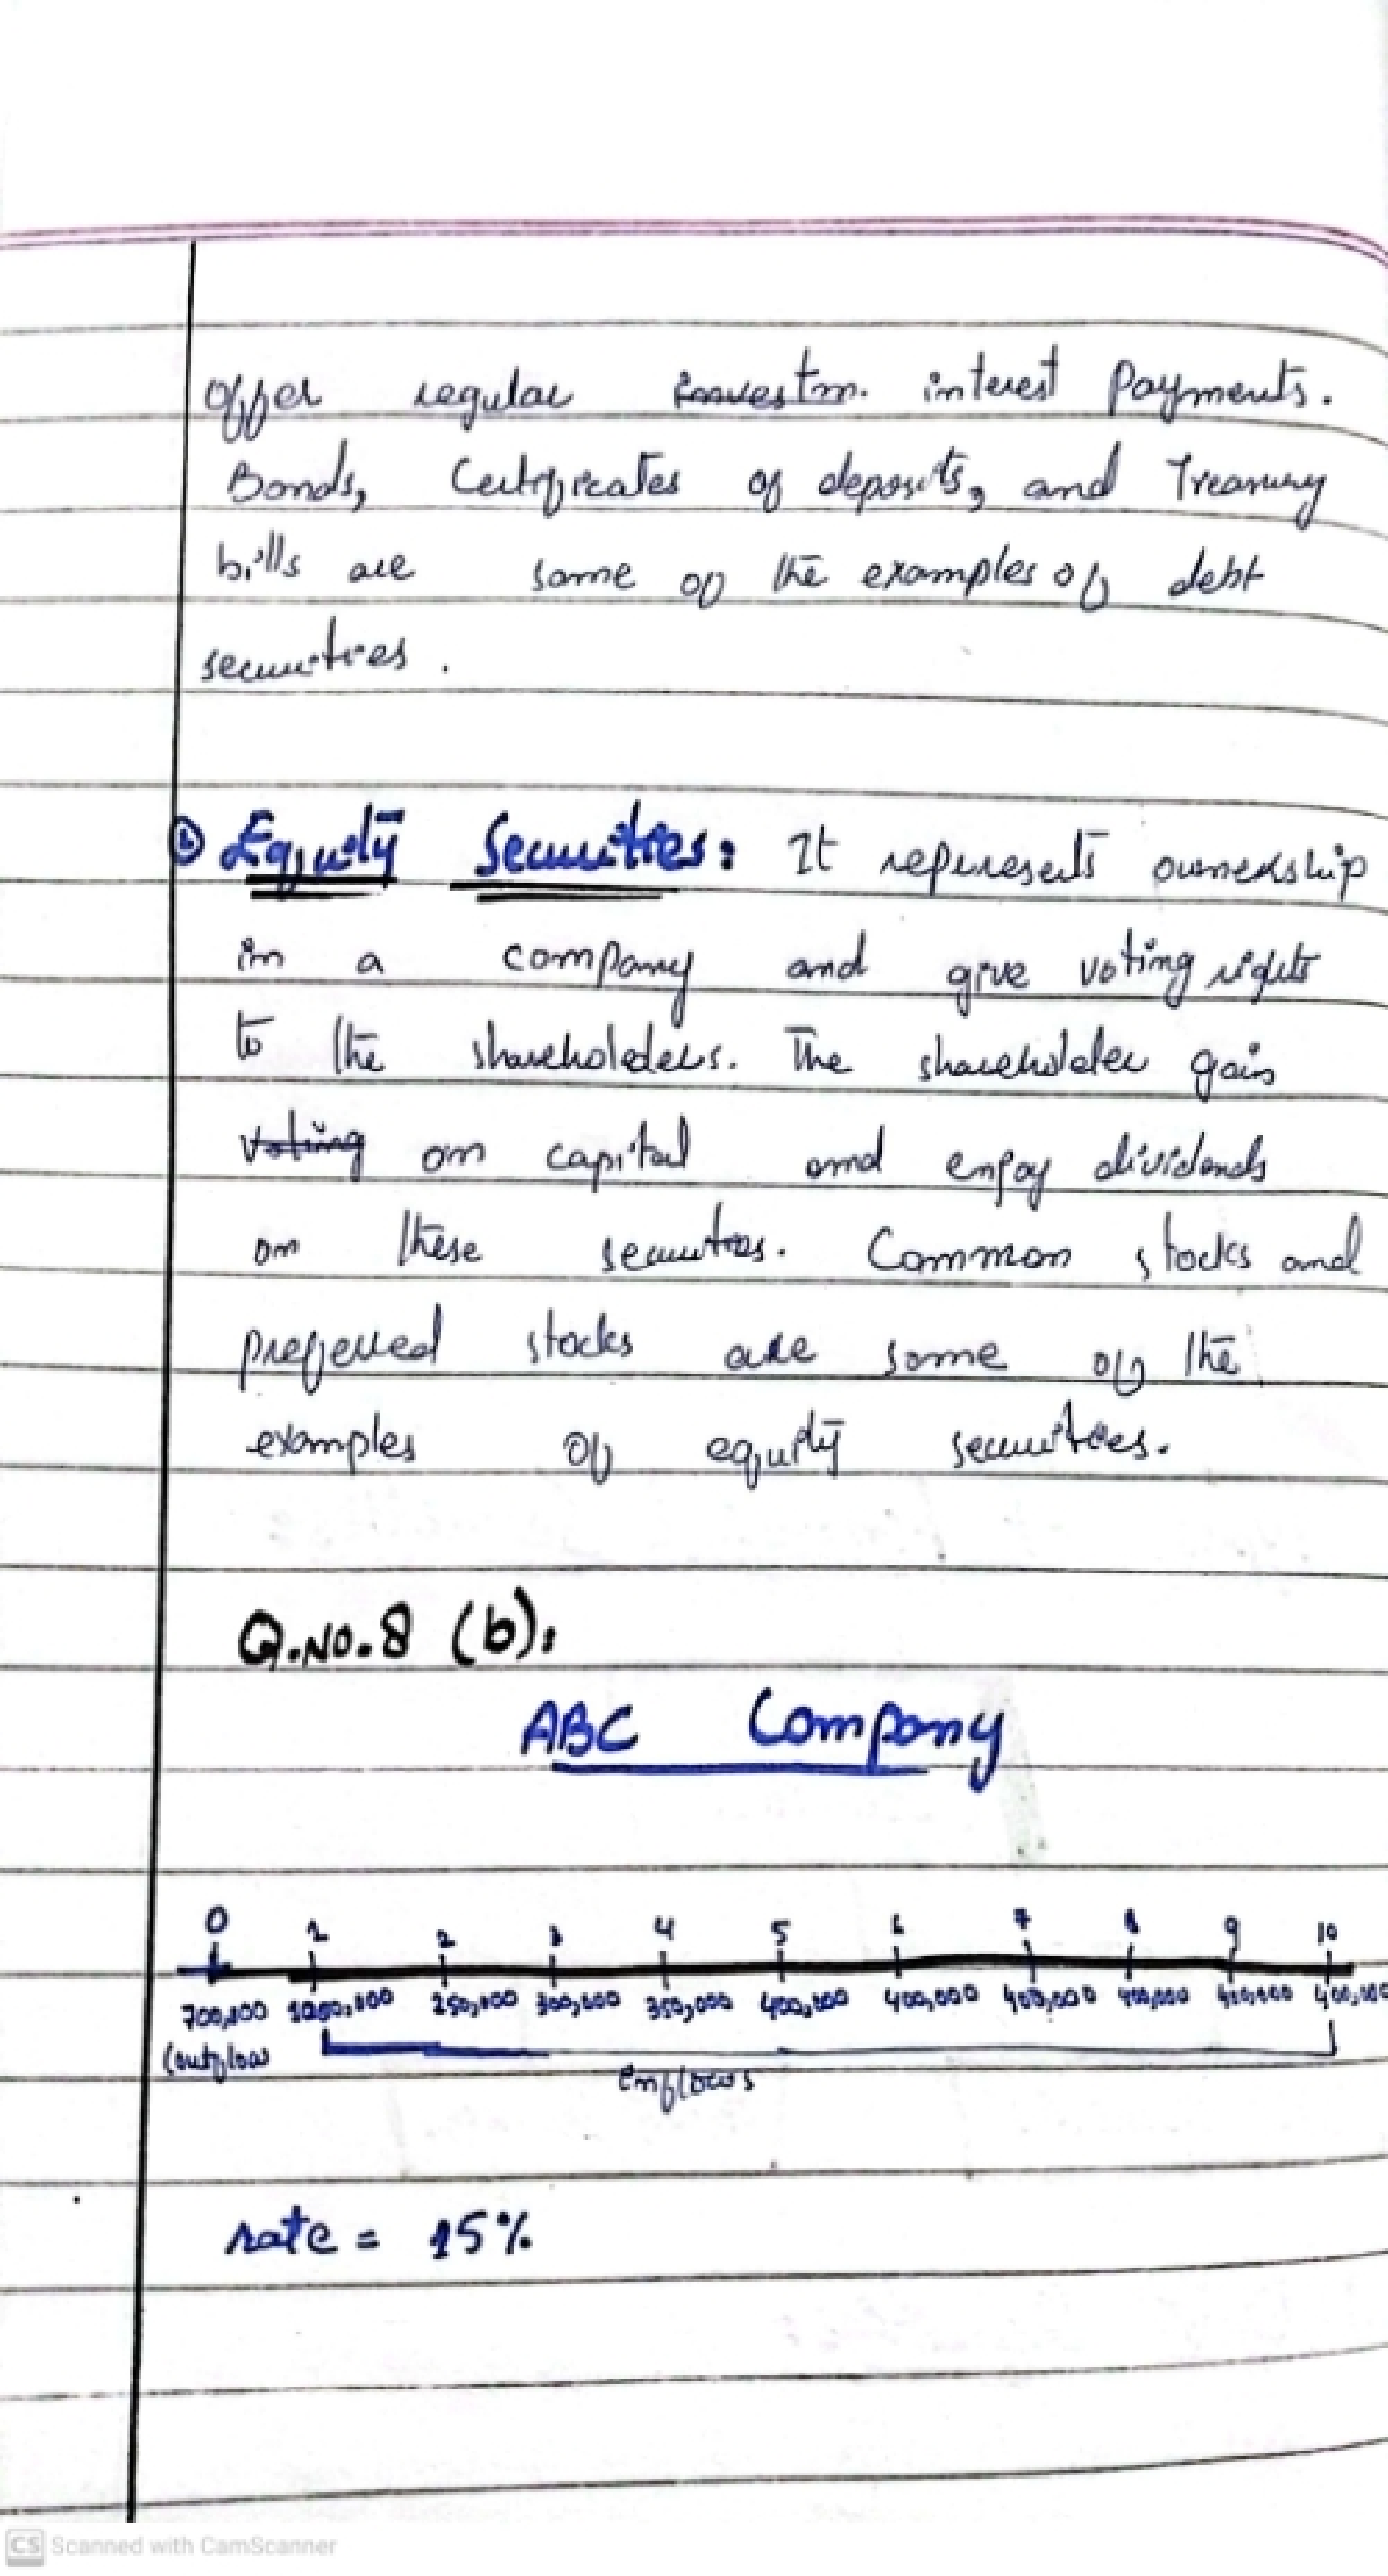 Offer regular investm. interest Payments.
Bonds, Certificates of deposits, and Treasury
bills are some of the examples of debt
securities.
(b) Equity Securities: It represents ownership
in a company and give voting rights
to the shareholders. The shareholder gain
voting on capital and enjoy dividends
on these securities. Common stocks and
preferred stocks are some of the
examples of equity securities.
Q.NO.8 (b):
ABC Company
0 1 2 3 4 5 6 7 8 9 10
700,000 250,000 300,000 350,000 400,000 400,000 400,000 400,000 400,000 400,000
(outflow
inflows
rate = 15%
CS Scanned with CamScanner